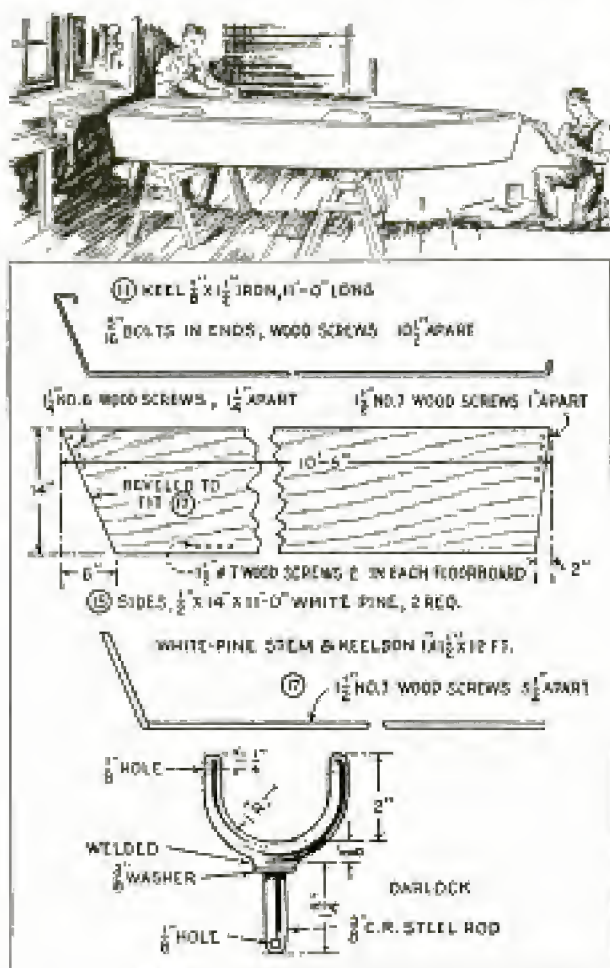 ⑪ KEEL ⅛" X 1½" IRON, 11'-0" LONG
BOLTS IN ENDS, WOOD SCREWS 10½" APART
1¼" NO.6 WOOD SCREWS, 1¼" APART
1½" NO.7 WOOD SCREWS 1" APART
14"
BEVELED TO
FIT
6"
2"
1½" #7 WOOD SCREWS 2 IN EACH FLOORBOARD
SIDES, ½" X 14" X 11'-0" WHITE PINE, 2 REQ.
WHITE-PINE STEM & KEELSON 1" X 1½" X 12 FT.
⑰
1½" NO.7 WOOD SCREWS APART
⅛" HOLE
2"
WELDED
⅜" WASHER
OARLOCK
⅜" C.R. STEEL ROD
⅛" HOLE